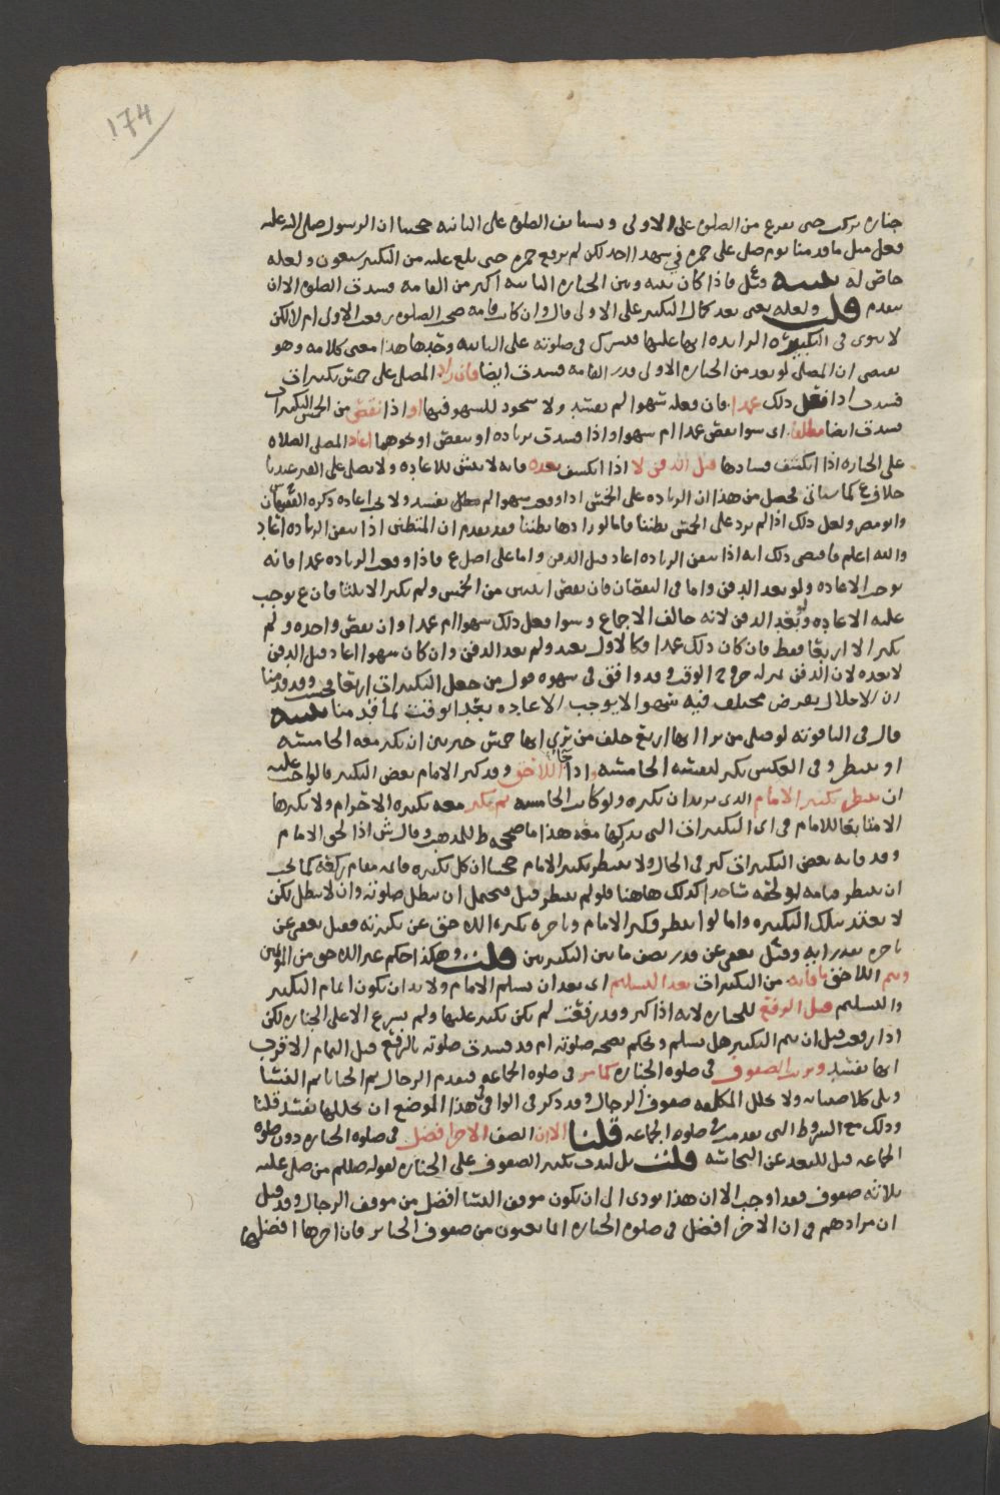 174
جنازه تركت حتى يفرغ من الصلوه على الاولى ويستانف الصلوه على الثانيه حجتنا ان الرسول صلى الله عليه
فعل مثل ما قدمنا يوم صلى على حمزه في شهدا احد لكن لم يرفع حمزه حتى بلغ عليه من التكبير سبعون ولعله
خاص له تنبيه وقيل فاذا كان بينه وبين الجنازه الثانيه اكثر من القامه فسدت الصلوه الا ان
يتقدم قلت ولعله يعني بعد كمال التكبير على الاولى قال وان كانت قامه صحت الصلوه رفعت الاولى ام لا لكن
لا ينوي في التكبيره الزايده انها عليها فيشرك في صلوته على الثانيه وحدها هذا معنى كلامه وهو
يقتضي ان المصلي لو بعد من الجنازه الاولى قدر القامه فسدت ايضا فان زاد المصلي على خمس تكبيرات
فسدت اذا فعل ذلك عمدا فان فعله سهوا لم يفسد ولا سجود للسهو فيها او اذا نقص من الخمس التكبيرات
فسدت ايضا مطلقا اي سوا نقص عمدا ام سهوا واذا فسدت بزياده او نقص او نحوهما اعاد المصلي الصلاه
على الجنازه اذا انكشف فسادها قبل الدفن لا اذا انكشف بعده فانه لا ينبش للاعاده ولا يصلى على القبر عندنا
خلاف ع كما سياتي فحصل من هذا ان الزياده على الخمس اذا وقعت سهوا لم تفسد ولا يجب اعاده ذكره الفقيهان
وابو مضر ولعل ذلك اذا لم يزد على الخمس بظننا فاما لو زادها بظننا فقد تقدم ان المتظنن اذا تيقن الزياده اعاد
والله اعلم فاقتضى ذلك انه اذا تيقن الزياده اعاد قبل الدفن واما على اصل ع فاذا وقعت الزياده عمدا فانه
يوجب الاعاده ولو بعد الدفن واما في النقصان فان نقص اثنين من الخمس ولم يكبر الا ثلثا فان ع يوجب
عليه الاعاده ولو بعد الدفن لانه خالف الاجماع وسوا فعل ذلك سهوا ام عمدا وان نقص واحده ولم
يكبر الا اربعا فقط فان كان ذلك عمدا فكالاول يعيد ولو بعد الدفن وان كان سهوا اعاد قبل الدفن
لا بعده لان الدفن بمنزله خروج الوقت وقد وافق في سهوه قول من جعل التكبيرات اربعا وقد قدمنا
ان الاخلال بفرض مختلف فيه سهوا لا يوجب الاعاده بعد الوقت لما قدمنا تنبيه
قال في الياقوته لو صلى من يرا انها اربع خلف من يرى انها خمس خير بين ان يكبر معه الخامسه
او ينتظر وفي العكس يكبر لنفسه الخامسه واذا جا اللاحق وقد كبر الامام بعض التكبير فالواجب عليه
ان ينتظر تكبير الامام الذي يريد ان يكبره ولو كانت الخامسه ثم يكبر معه تكبيره الاحرام ولا يكبرها
الا متابعا للامام في اي التكبيرات التي يدركها معه هذا ما صححه ط للمذهب وقال ش اذا لحق الامام
وقد فاته بعض التكبيرات كبر في الحال ولا ينتظر تكبير الامام حجتنا ان كل تكبيره قايمه مقام ركعه كما يجب
ان ينتظر قيامه لو لحقه ساجدا كذلك هاهنا فلو لم ينتظر قيل فيحتمل ان تبطل صلوته وان لا تبطل لكن
لا يعتد بتلك التكبيره واما لو انتظر وكبر الامام وتاخر تكبير اللاحق عن تكبيرته فقيل يعفى عن
تاخره بقدر ايه وقيل يعفى عن قدر نصف ما بين التكبيرتين قلت وهكذا حكم غير اللاحق من المؤتمين
ويتم اللاحق ما فاته من التكبيرات بعد التسليم اي بعد ان يسلم الامام ولا بد ان يكون اتمام التكبير
والتسليم قبل الرفع للجنازه لانه اذا كبر وقد رفعت لم يكن تكبير عليها ولم يشرع الا على الجنازه لكن
اذا رفعت قبل ان يتم التكبير هل يسلم ويحكم بصحه صلوته ام قد فسدت صلوته بالرفع قبل التمام الاقرب
انها تفسد وترتب الصفوف في صلوه الجنازه كما مر في صلوه الجماعه فيقدم الرجال ثم الخناثا ثم النسا
ويلي كلا صبيانه ولا تخلل المكلفه صفوف الرجال وقد ذكر في الوافي في هذا الموضع ان تخللها يفسد قلنا
وذلك مع الشروط التي تقدمت في صلوه الجماعه قلنا الا ان الصف الاخر افضل في صلوه الجنازه دون صلوه
الجماعه قيل للبعد عن النجاسه قلت بل لندب تكثير الصفوف على الجنازه لقوله صللم من صلى عليه
ثلاثه صفوف فقد اوجب الا ان هذا يودي الى ان يكون موقف النسا افضل من موقف الرجال وقد قيل
ان مرادهم في ان الاخر افضل في صلوه الجنازه انما يعنون من صفوف الجنايز فان اخرها افضلها